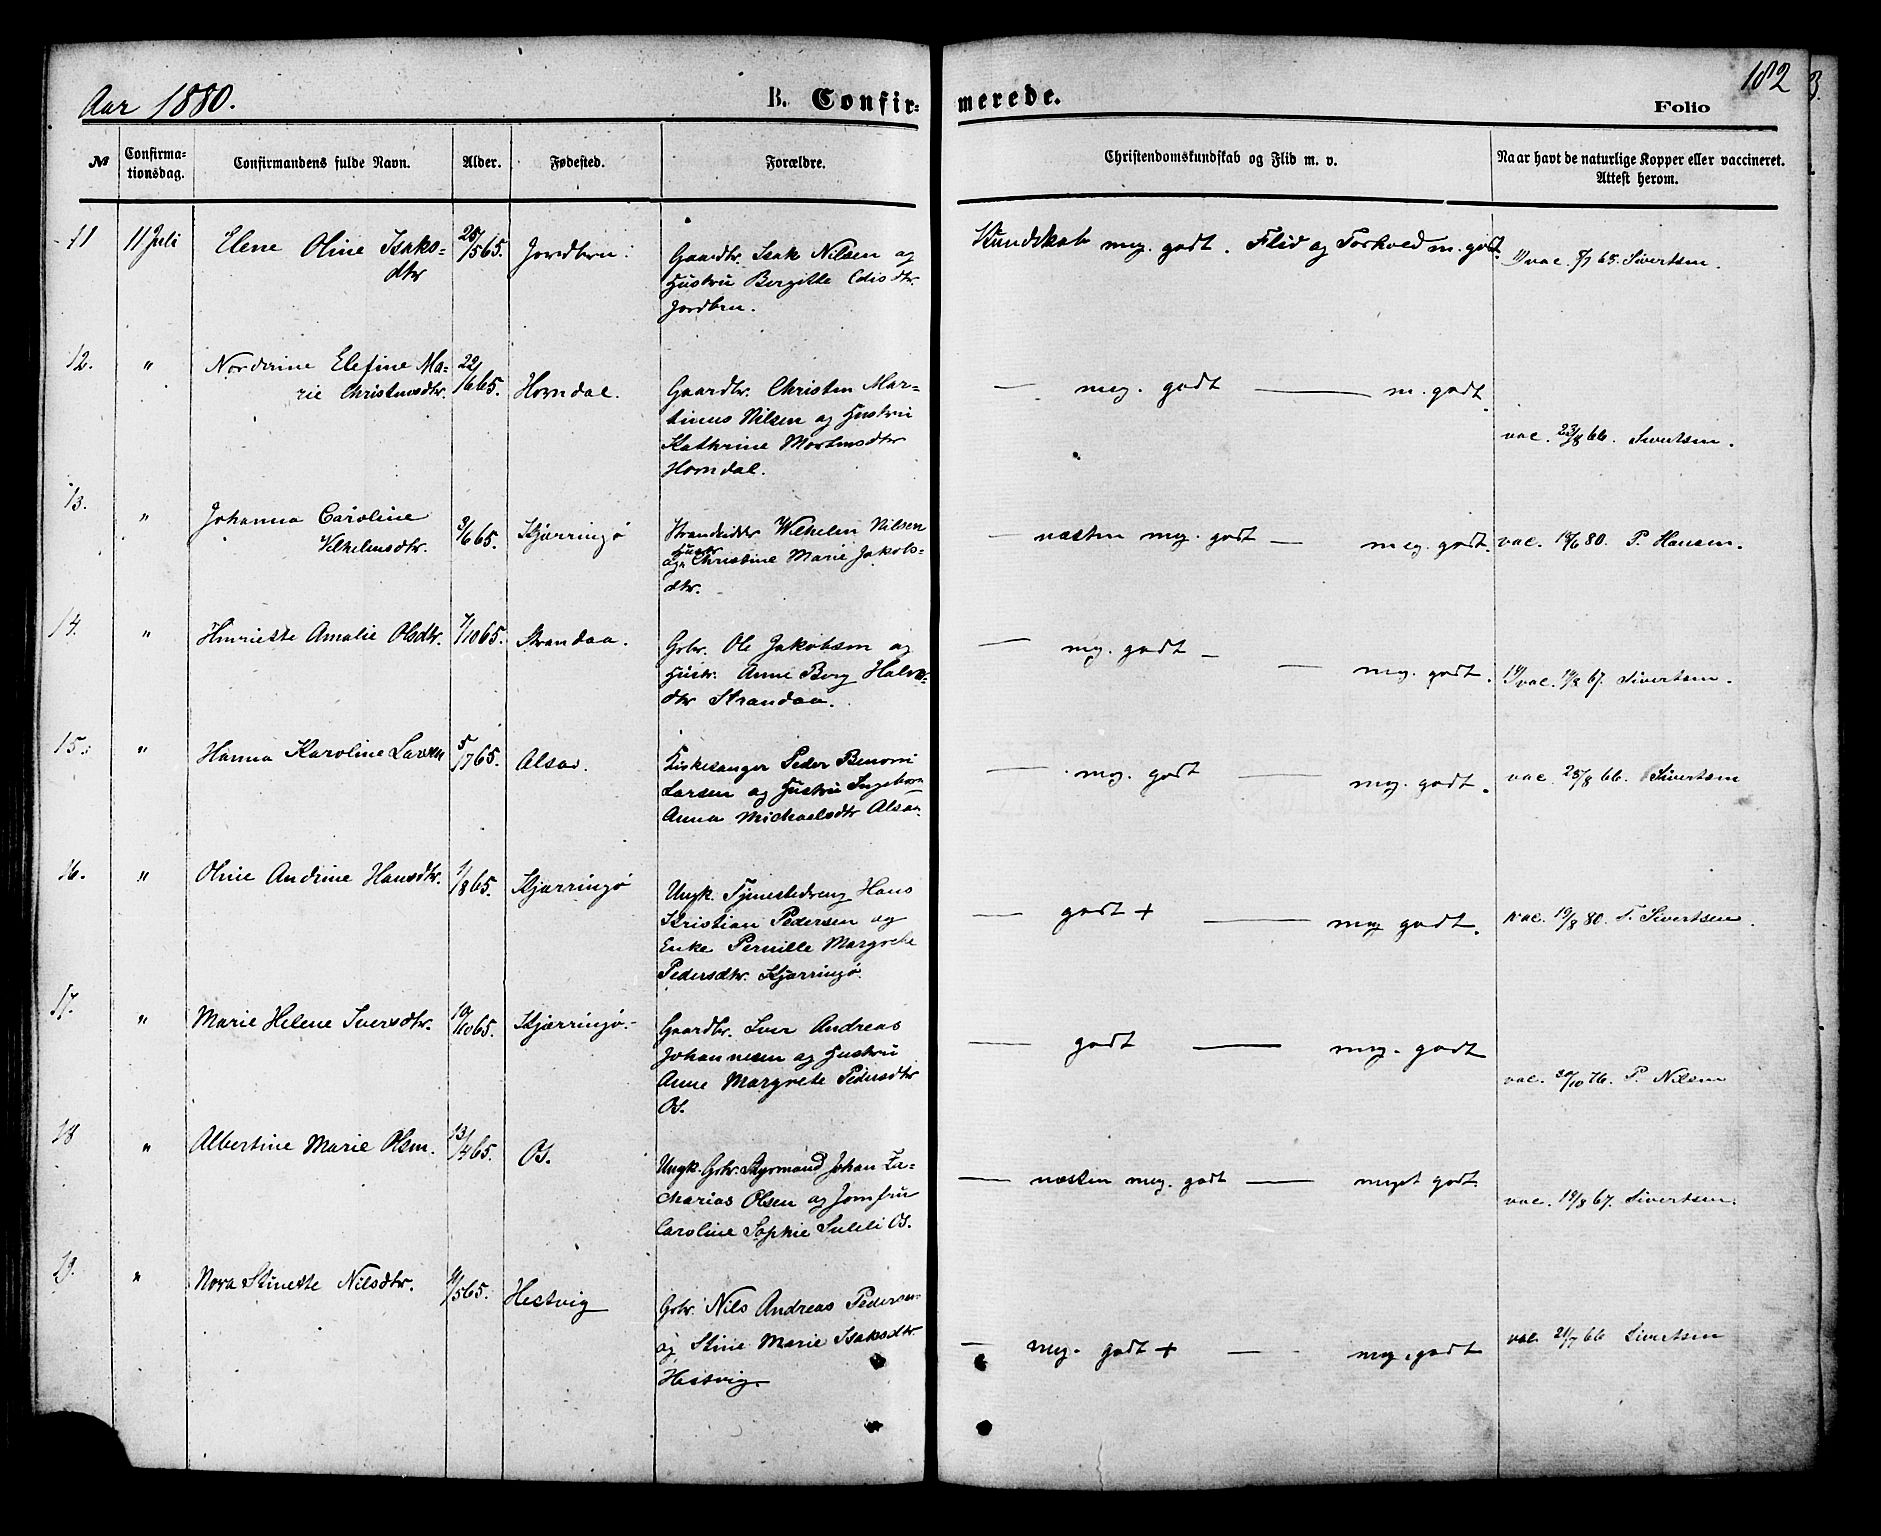 Aar 1880. B. Confirmerede. Folio 182
№ Confirmationsdag. Confirmandens fulde Navn. Alder. Fødested. Forældre. Christendomskundskab og Flid m. v. Naar havt de naturlige Kopper eller vaccineret. Attest herom.
11 11 Juli Elene Oline Isaksdtr 25/5 65. Jordbru. Gaardbr. Isak Nilsen og
Hustru Bergitte
Jordbru.
Kundskab meg. godt. Flid og Forhold m. godt. vac. 8/7 65. Sivertsen.
12. " Norderine Elefine Ma-
rie Christensdtr. 22/6 65. Horndal. Gaardbr. Christen Mar-
tinus Nilsen og Hustru
Kathrine Mortensdtr
Horndal.
— meg. godt — m. godt. vac. 23/8 66. Sivertsen.
13. " Johanna Caroline
Vilhelmsdtr. 3/6 65. Kjærringø Strandsidder Wilhelm Nilsen
og Hustr. Christine Marie Jakobs-
dtr.
— næsten meg. godt — meg. godt. vac. 18/6 80. P. Hansen.
14. " Henriette Amalie Olsdtr. 7/10 65. Strandaa. Grbr. Ole Jakobsen og
Hustr. Anne Berg
dtr Strandaa.
— meg. godt — — meg. godt. vac. 19/8 67. Sivertsen.
15. " Hanna Karoline Larsen 5/7 65. Alsos. Kirkesanger Peder Benoni
Larsen og Hustru Ingeborg
Anna Michaelsdtr
— meg. godt — meg. godt. vac. 25/8 66. Sivertsen
16. " Oline Andrine Hansdtr. 1/8 65. Kjærringø Ungk. Tjenestedreng Hans
Kristian Pedersen og
Enke Pernille Margrete
Pedersdtr. Kjærringø.
— godt + — meg godt. vac. 19/8 80. F. Sivertsen.
17. " Marie Helene Iversdtr. 10/10 65. Kjærringø. Gaardbr. Iver Andreas
Johannesen og Hustru
Anne Margrete Pedersdtr
Os.
— godt — meg. godt vac. 30/10 76. P. Nilsen
18 " Albertine Marie Olsen. 13/4 65. Os. Ungk. Grbr. Styrmand Johan Za-
charias Olsen og Jomfru
Caroline Sophie Os.
— næsten meg. godt — meget godt. vac. 19/8 67. Sivertsen.
19. " Nora Stinette Nilsdtr. /5 65. Hestvig Grbr. Nils Andreas Pedersen
og Stine Marie Isaksdtr.
Hestvig.
— meg. godt + — meg. godt vac. 21/7 66 Sivertsen